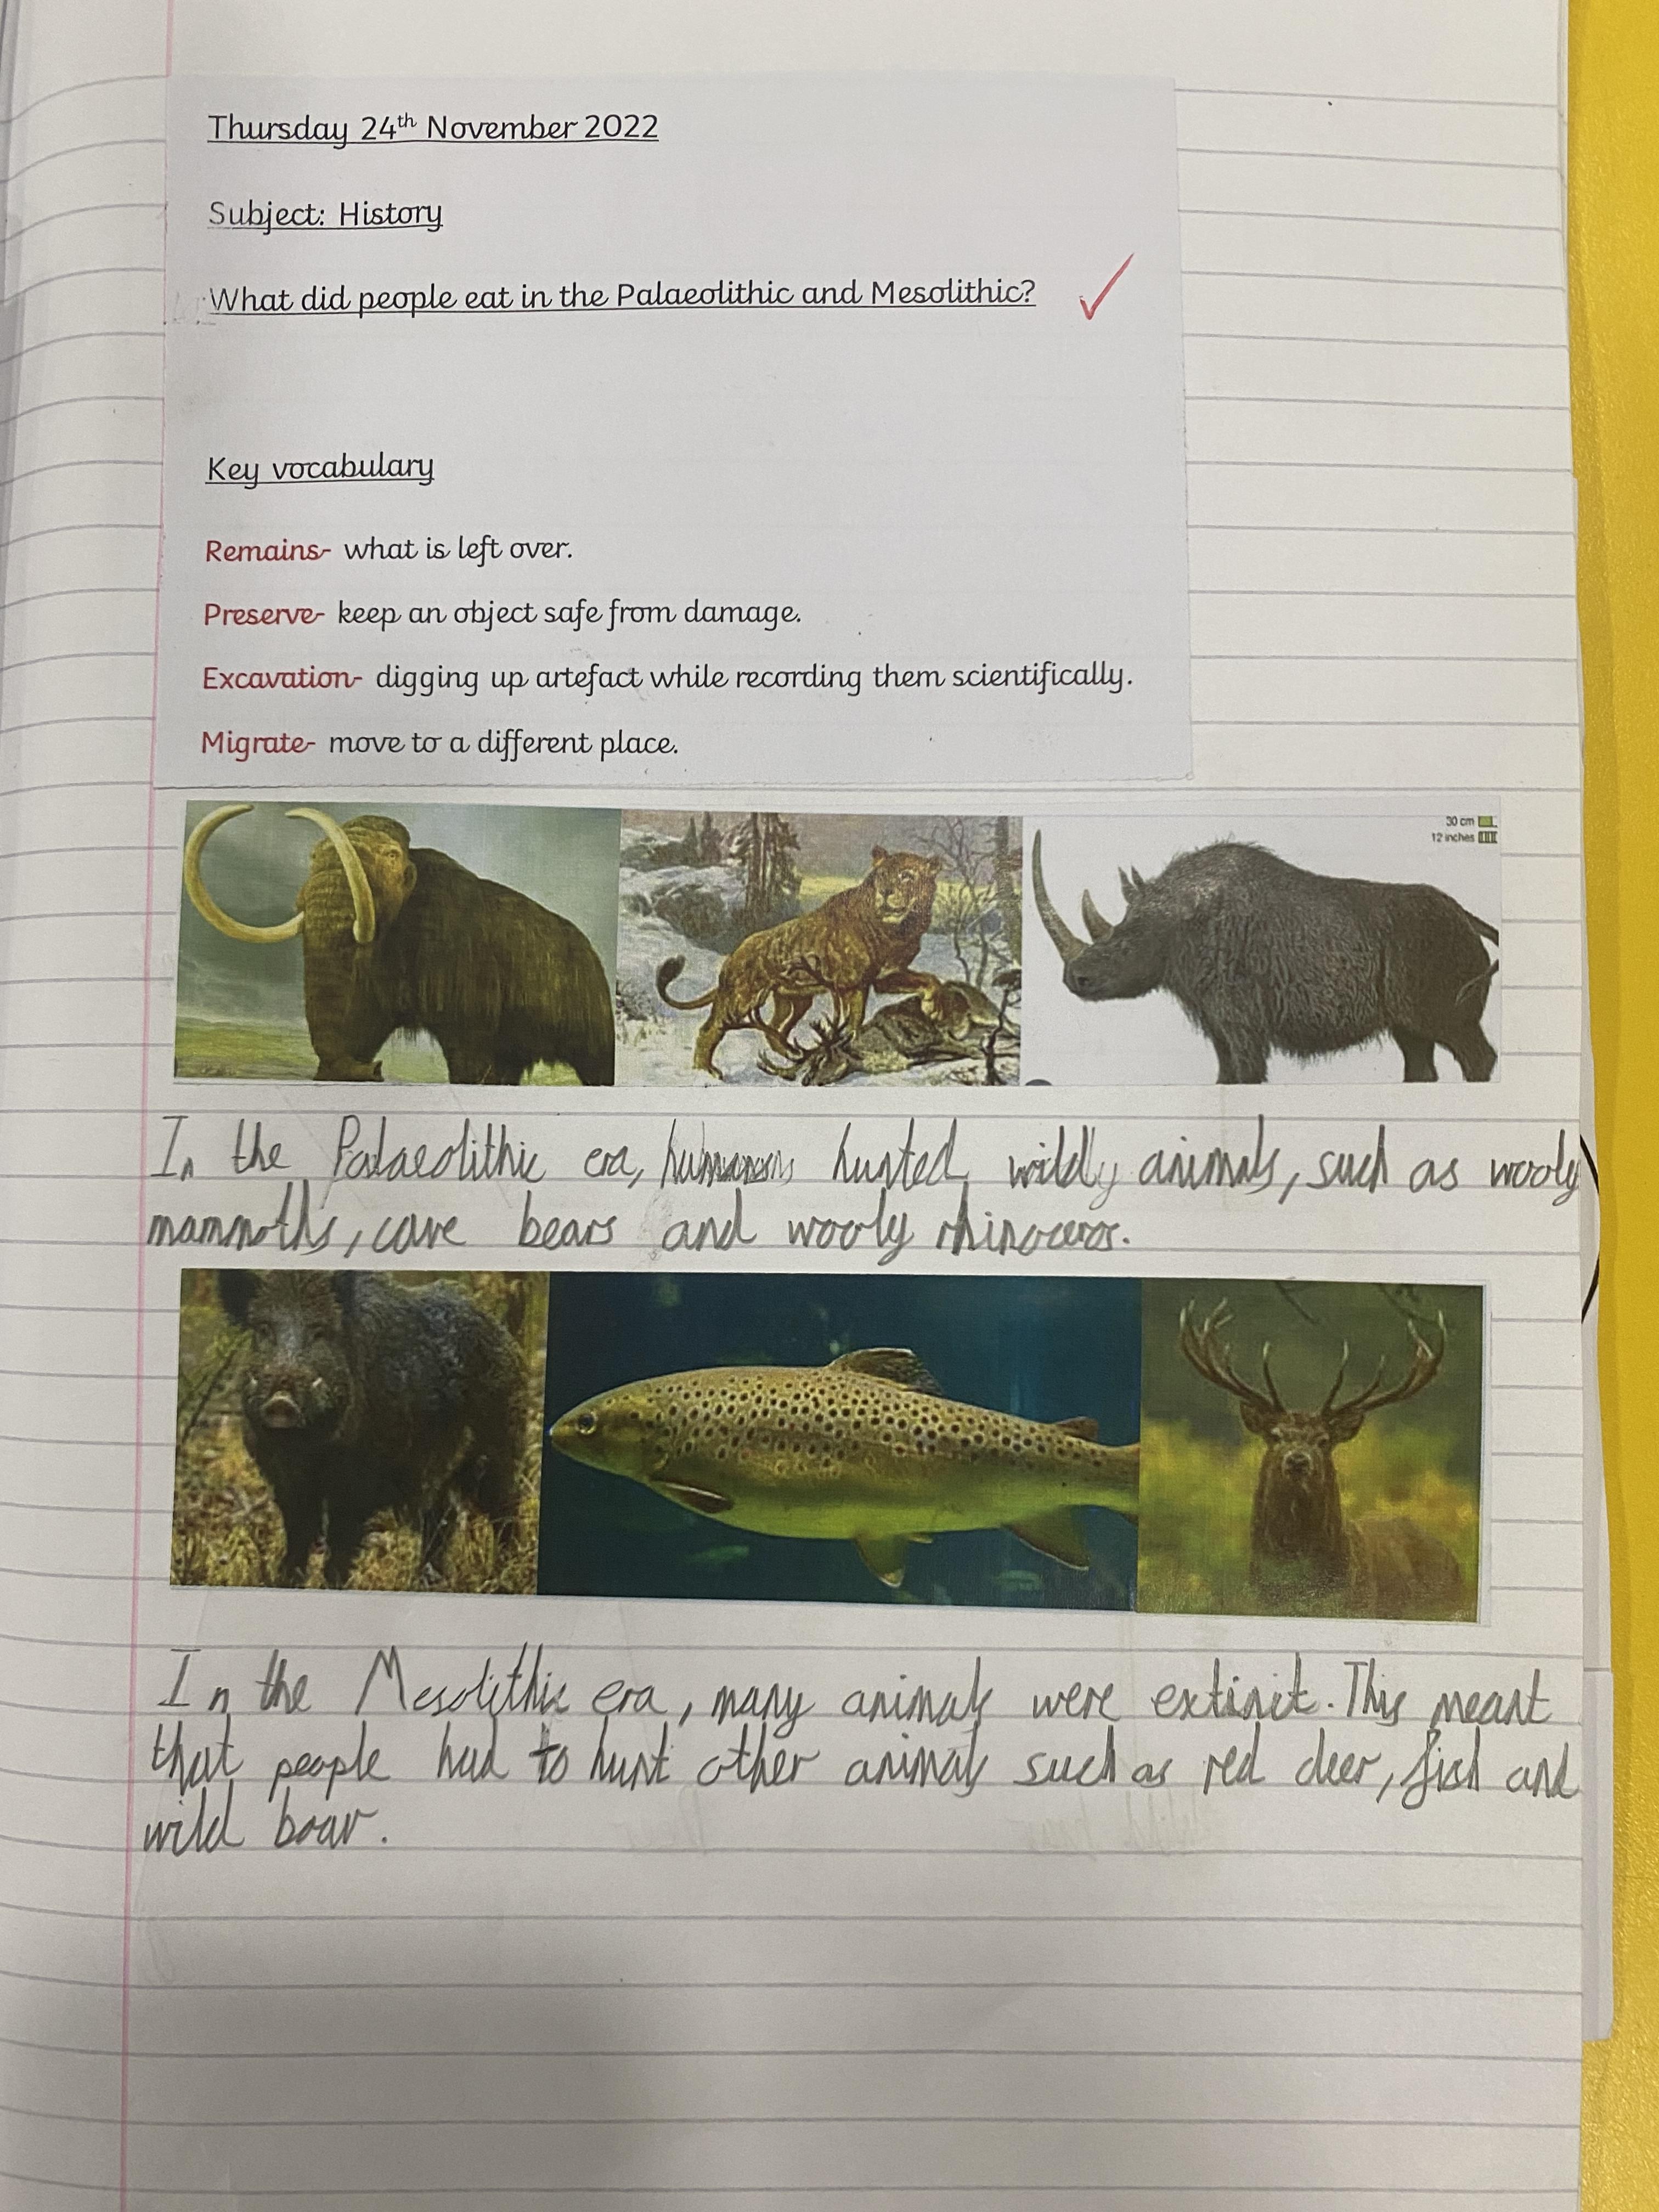 Thursday 24th November 2022
Subject: History
What did people eat in the Palaeolithic and Mesolithic?
Key vocabulary
Remains- what is left over.
Preserve- keep an object safe from damage.
Excavation- digging up artefact while recording them scientifically.
Migrate- move to a different place.
30 cm
12 inches
In the Palaeolithic era, humans hunted wildly animals, such as wooly
mammoths, cave bears and wooly rhinoceros.
In the Mesolithic era, many animals were extinct. This meant
that people had to hunt other animals such as red deer, fish and
wild boar.